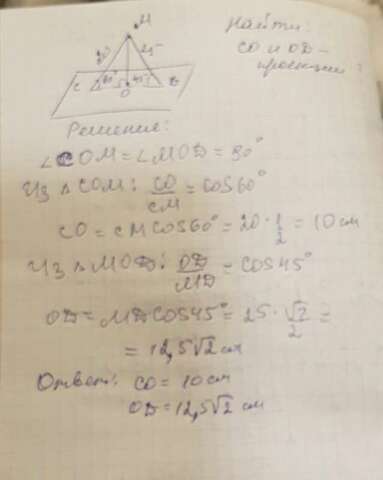 Найти:
CO и OD -
проекции
M
20
25
C
60°
45°
D
O
Решение:
∠COM = ∠MOD = 90°
Из △COM: CO/CM = cos60°
CO = CM cos60° = 20 · 1/2 = 10 см
Из △MOD: OD/MD = cos45°
OD = MD cos45° = 25 · √2/2 =
= 12,5√2 см
Ответ: CO = 10 см
OD = 12,5√2 см